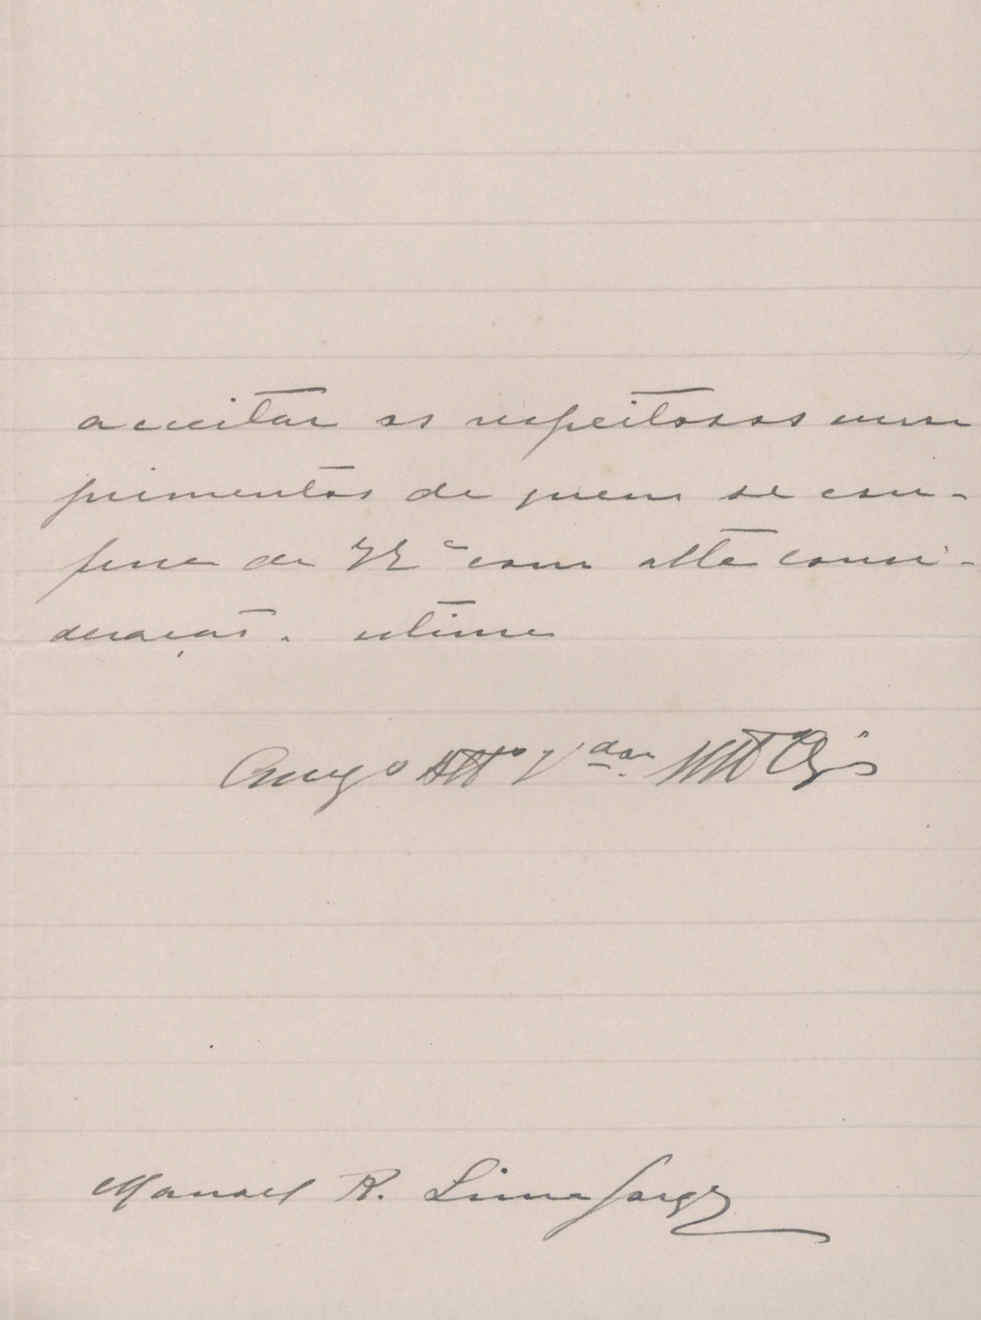 acceitar os respeitosos cum
primentos de quem se con-
fessa de VEª com alta consi-
deração. estima
Amgº Attº Vdor Mtº Obrº
Manoel R. Lima Jorge